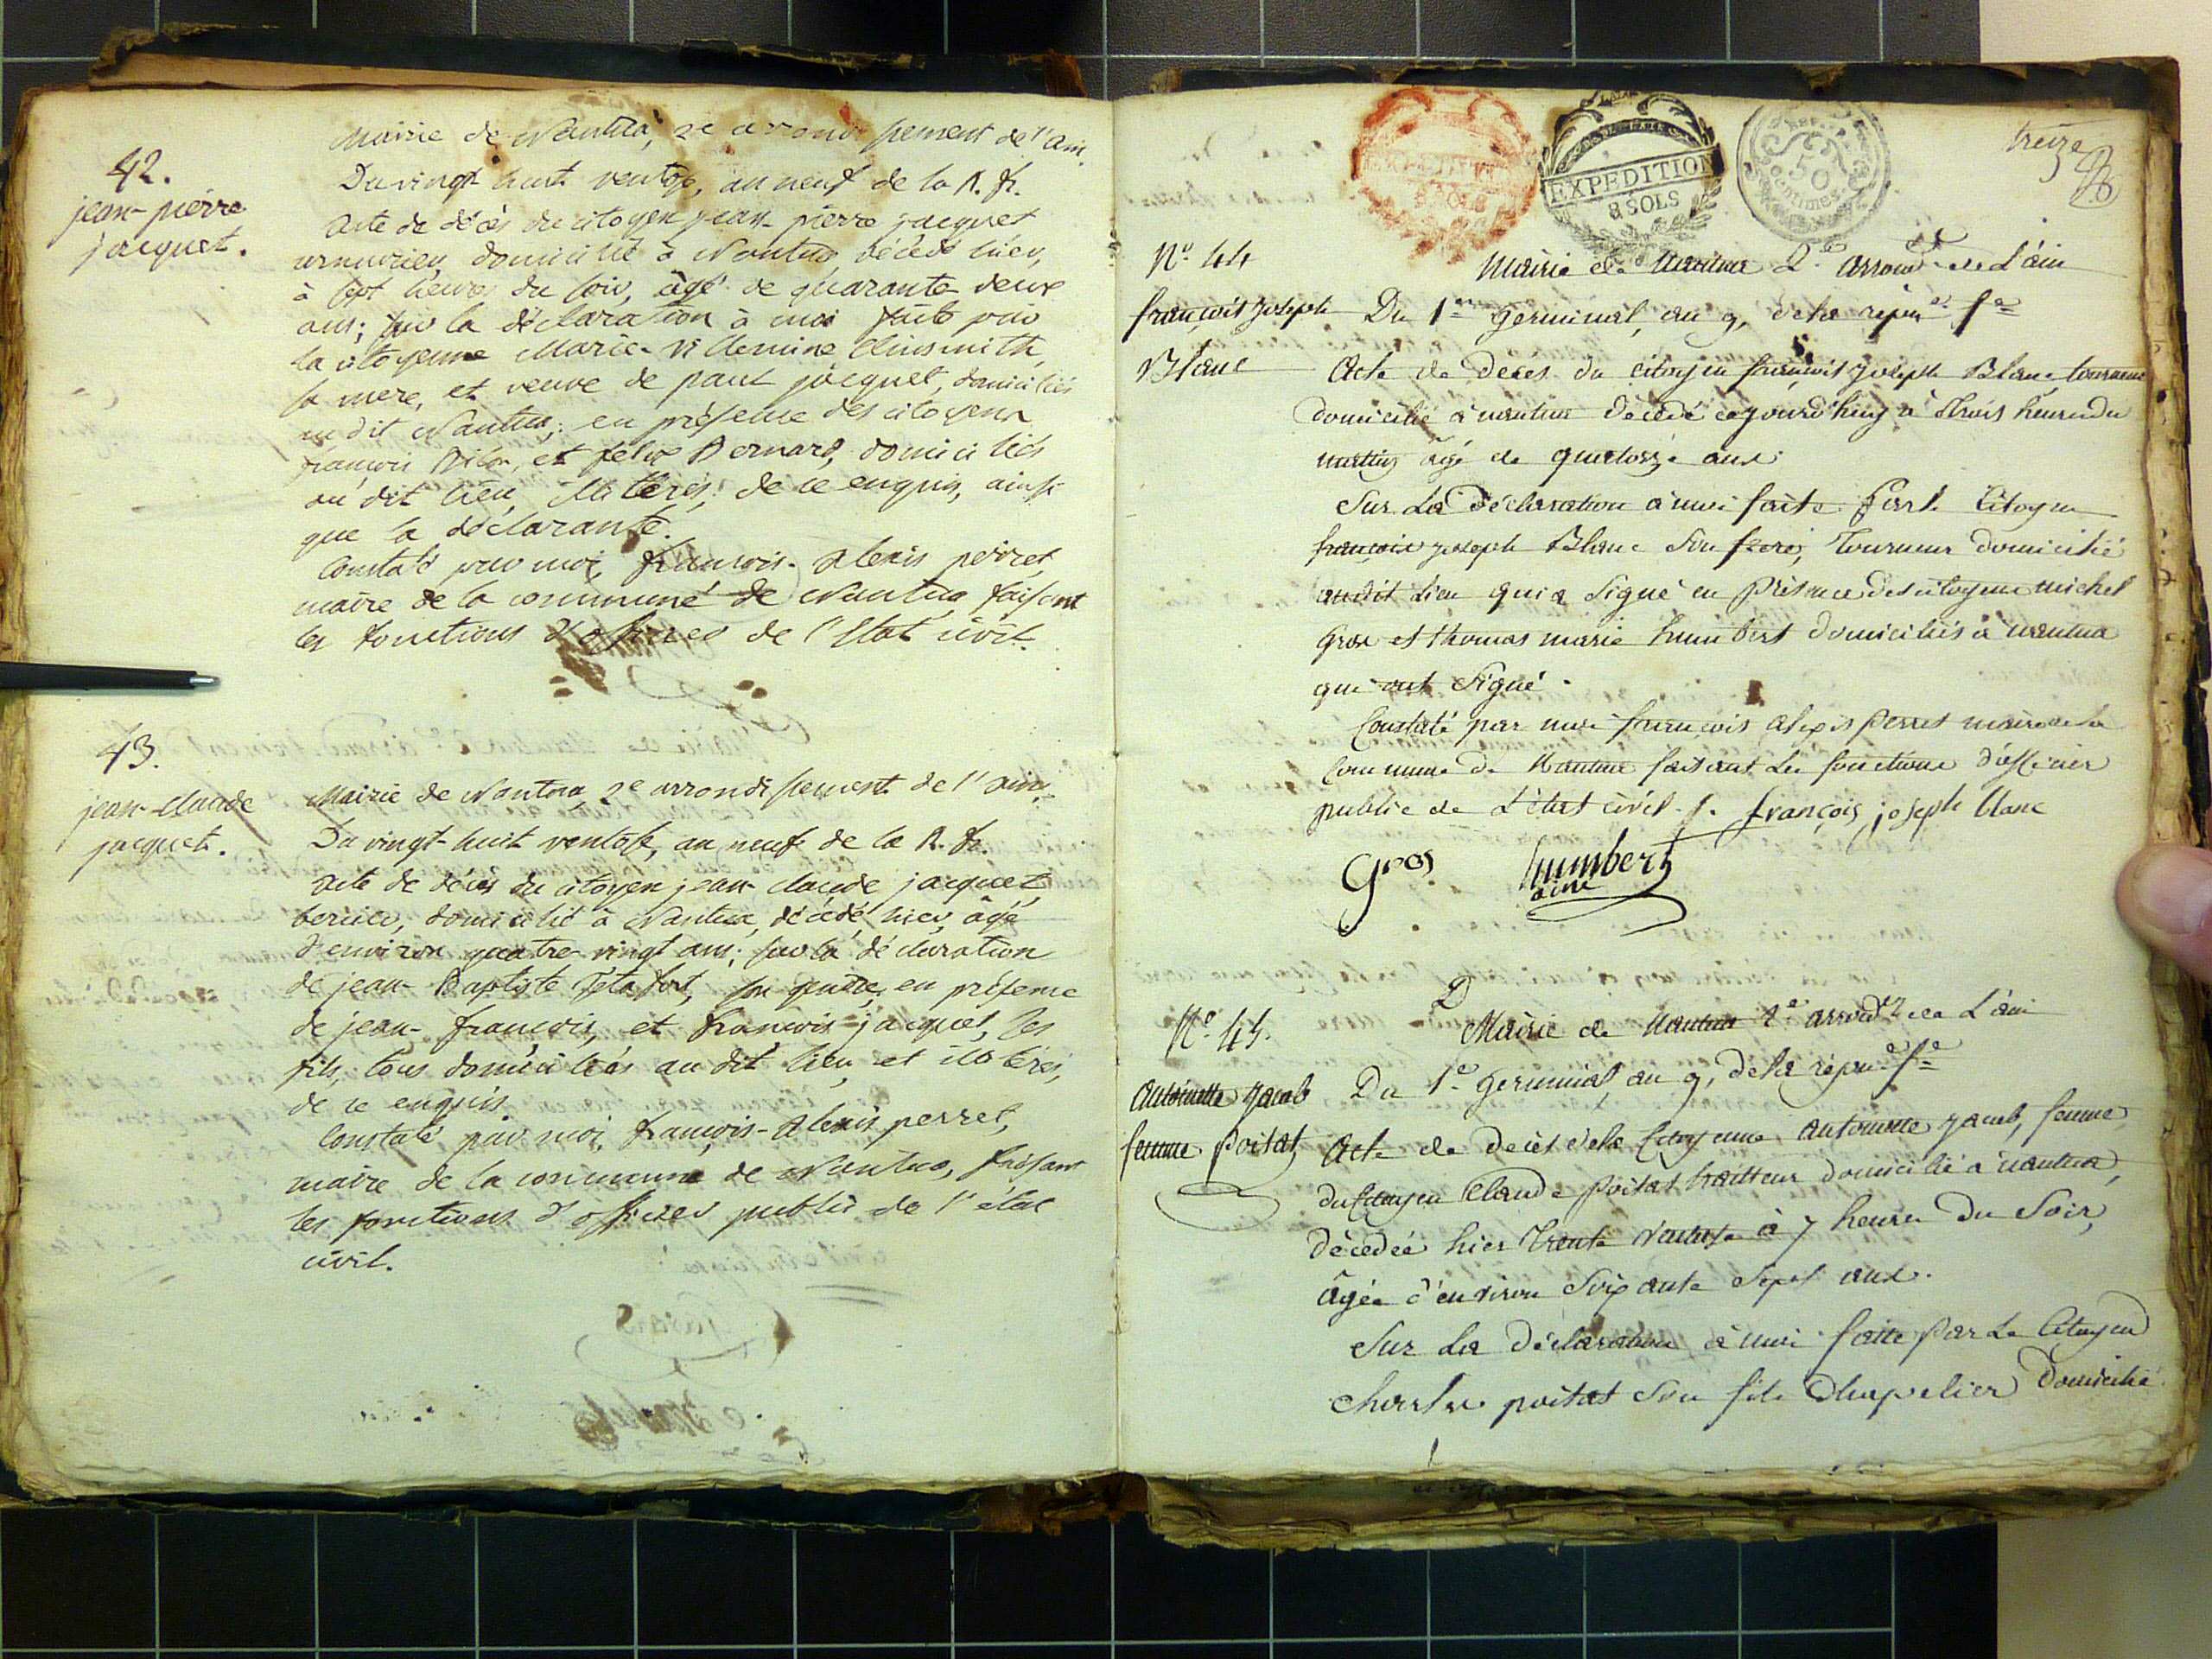 42.
jean-pierre
jacquet.
Mairie de Nantua, 2e arrondissement de l'ain.
Du vingt huit ventose, an neuf de la R. fr.
acte de décès du citoyen jean-pierre jacquet
domicilié à Nantua, décédé hier,
à sept heures du soir, âgé de quarante deux
ans; sur la déclaration à moi faite par
la citoyenne Marie-
sa mere, et veuve de paul jacquet, domiciliés
au dit Nantua; en présence des citoyens
françois et felix Bernard, domiciliés
au dit lieu, illiterés, de ce enquis, ainsi
que la déclarante.
Constaté par moi, françois-Alexis perret,
maire de la commune de Nantua, faisant
les fonctions d'officier de l'Etat civil.
43.
jean-claude
jacquet.
Mairie de Nantua, 2e arrondissement de l'ain,
Du vingt-huit ventose, an neuf de la R. fr.
acte de décès du citoyen jean-claude jacquet,
domicilié à Nantua, décédé, hier, âgé
d'environ quatre-vingt ans; sur la déclaration
de jean-Baptiste son gendre, en présence
de jean-françois, et françois jacquet, ses
fils, tous domiciliés au dit lieu, et illiterés,
de ce enquis.
Constaté par moi, françois-Alexis perret,
maire de la commune de Nantua, faisant
les fonctions d'officier public de l'état
civil.
EXPEDITION
8 SOLS
EXPEDITION
8 SOLS
REP.
50
centimes
treize
13
No. 44
françois joseph
Blanc
Mairie de Nantua 2.e arrond.t de L'ain
Du 1.er germinal, an 9, de la répu.e f.e
Acte de deces du citoyen françois joseph Blanc tourneur
domicilié à nantua décédé cejourdhuy à trois heures du
matin âgé de quatorze ans.
Sur La déclaration à moi faite Par le Citoyen
françois joseph Blanc Son frere, Tourneur domicilié
audit Lieu qui a Signé en présence des citoyens michel
gros et thomas marie humbert domiciliés à nantua
qui ont Signé.
Constaté par moi françois alexis perret maire de la
Commune de Nantua faisant Les fonctions d'officier
public de L'état civil. françois joseph blanc
Gros humbert
ainé
No. 45.
Antoinette jacob
femme poitat
Mairie de Nantua 2.e arrond.t de L'ain
Du 1.er germinal an 9, de la répu.e f.e
Acte de decès de la Citoyenne Antoinette jacob, femme
du Citoyen Claude poitat traitteur domicilié à nantua,
décédée hier Trente Ventose à 7 heures du Soir,
âgée d'environ Soixante Sept ans.
Sur La déclaration à moi faitte Par Le Citoyen
Charles poitat Son fils Chapelier domicilié